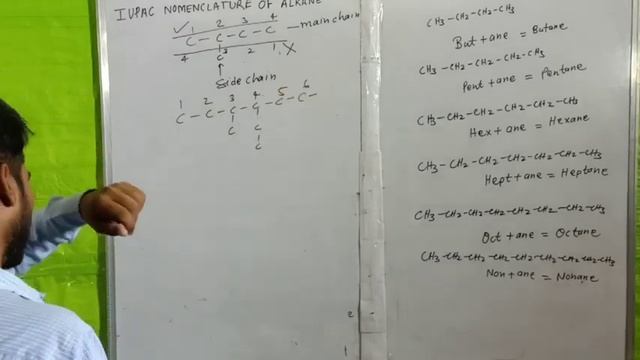 IUPAC NOMENCLATURE OF ALKANE
1 2 3 4
C – C – C – C – main chain
4 C 2 1 X
↑
Side chain
1 2 3 4 5 6
C – C – C – C – C – C –
C C
C
CH3 –CH2 –CH2 –CH3
But + ane = Butane
CH3 –CH2 –CH2 –CH2 –CH3
Pent + ane = Pentane
CH3 –CH2 –CH2 –CH2 –CH2 –CH3
Hex + ane = Hexane
CH3 –CH2 –CH2 –CH2 –CH2 –CH2 –CH3
Hept + ane = Heptane
CH3 –CH2 –CH2 –CH2 –CH2 –CH2 –CH2 –CH3
Oct + ane = Octane
CH3 –CH2 –CH2 –CH2 –CH2 –CH2 –CH2 –CH2 –CH3
Non + ane = Nonane
2
1